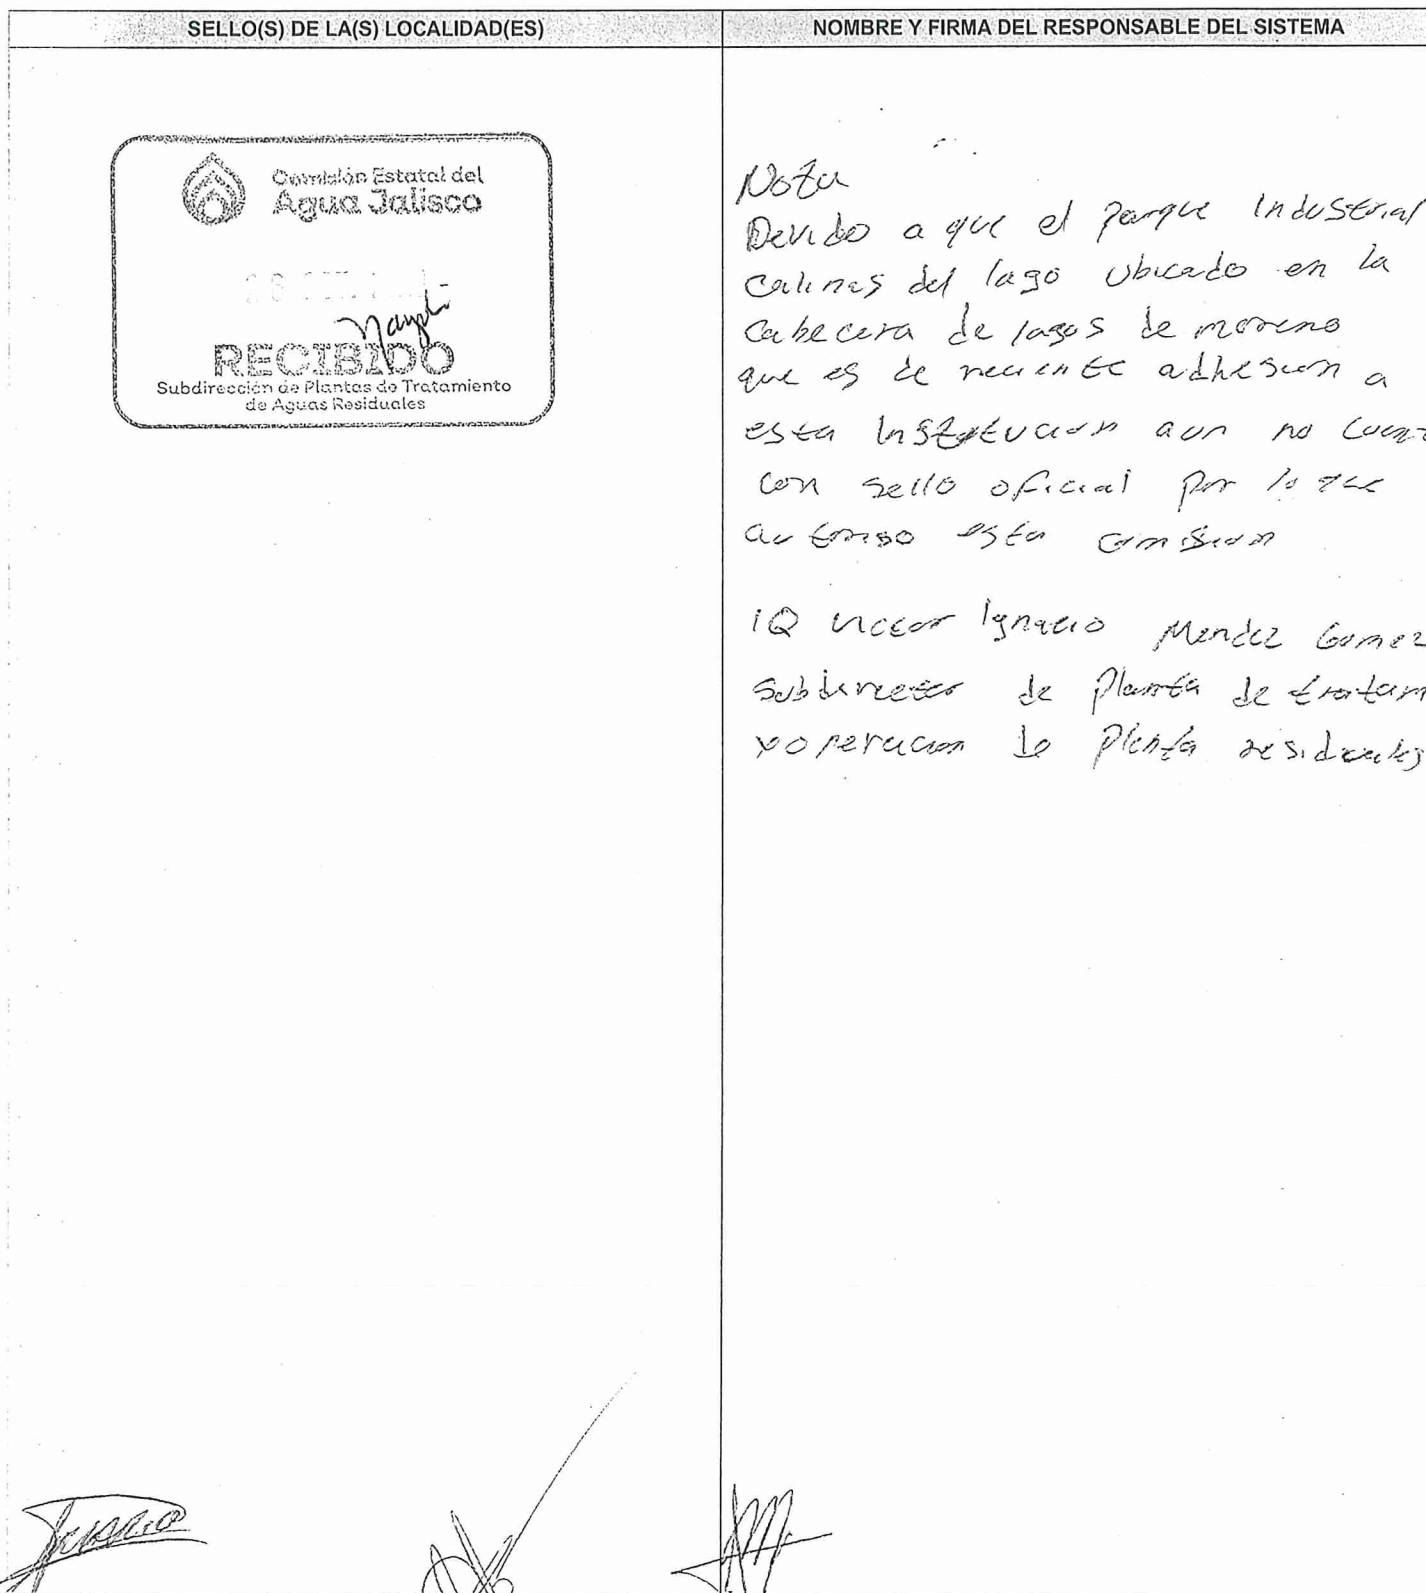 SELLO(S) DE LA(S) LOCALIDAD(ES)
NOMBRE Y FIRMA DEL RESPONSABLE DEL SISTEMA
Comisión Estatal del
Agua Jalisco
RECIBIDO
Subdirección de Plantas de Tratamiento
de Aguas Residuales
Nota
Devido a que el Parque Industrial
Colinas del lago Ubicado en la
Cabecera de lagos de moreno
que es de reciente adhesion a
esta Institucion aun no cuent
con sello oficial por lo que
autoriso esta comision
IQ Victor Ignacio Mendez Gomez
Subdirector de Planta de tratam
y operacion de Planta residuales